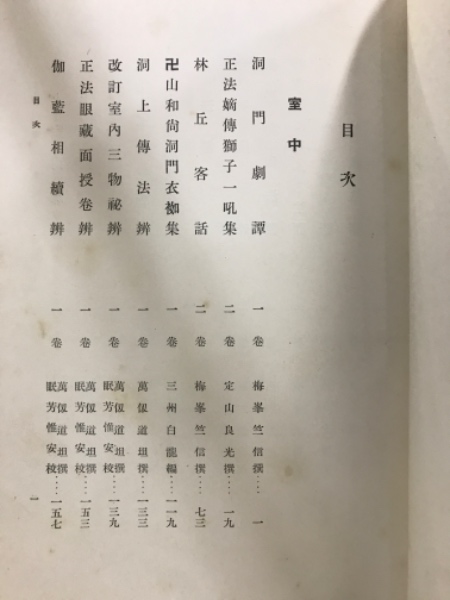 目次
室中
洞門劇譚 一卷 梅峯竺信撰‥‥一
正法嫡傳獅子一吼集 二卷 定山良光撰‥‥一九
林丘客話 二卷 梅峯竺信撰‥‥七三
卍山和尙洞門衣袽集 一卷 三州白龍編‥‥一一九
洞上傳法辨 一卷 萬仭道坦撰‥‥一三三
改訂室內三物祕辨 一卷 萬仭道坦撰 眠芳惟安校‥‥一三九
正法眼藏面授卷辨 一卷 萬仭道坦撰 眠芳惟安校‥‥一五三
伽藍相續辨 一卷 萬仭道坦撰 眠芳惟安校‥‥一五七
目次
一